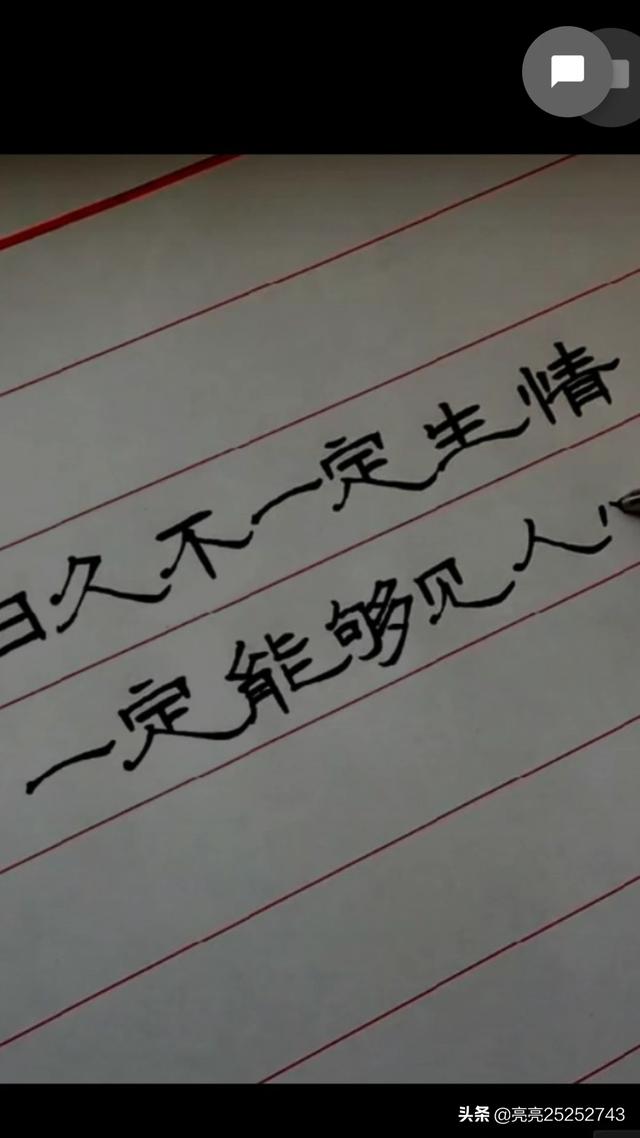 日久不一定生情
一定能够见人
头条 @亮亮25252743